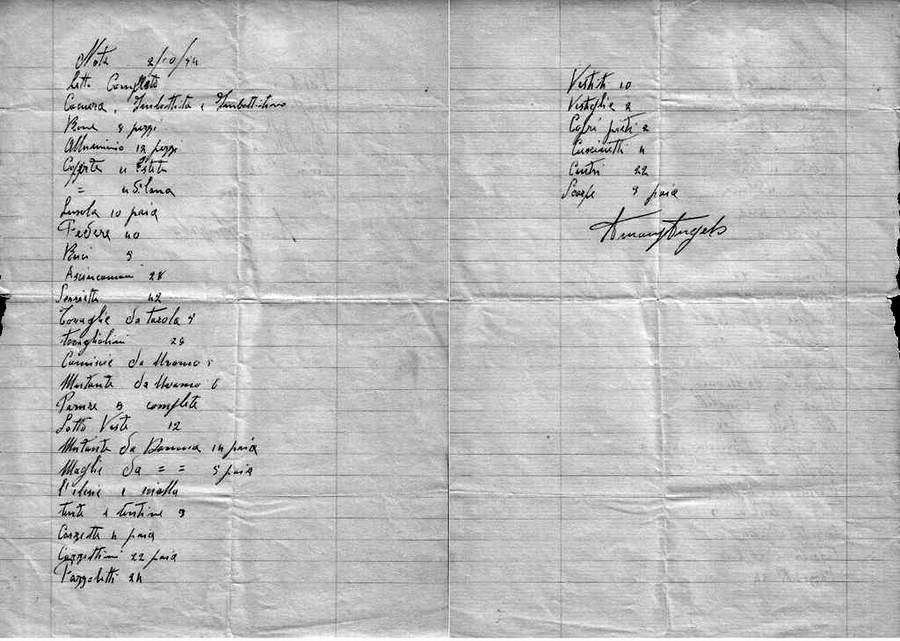 Nota 2/10/94
Letto Completo
Camera, Imbottita e Imbottitino
Rame 5 pezzi
Alluminio 12 pezzi
Coperte 4 Estite
= 4 S. Lana
Lensola 10 paia
Federe 40
Asciucamani 28
Serviette 42
Tovaglie da Tavola
Tovagliolini 28
Camicie da Uuomo
Mutante da Uuomo 6
complete
Sotto Veste 12
Mutante da Donna 14 paia
Maglie da = = 5 paia
scialla
Carzette 4 paia
Carzettini 22 paia
Fazzoletti 24
Vestiti 10
Vestaglie 2
Copri 2
Cuscinetti 4
Centri 22
Scarpe paia